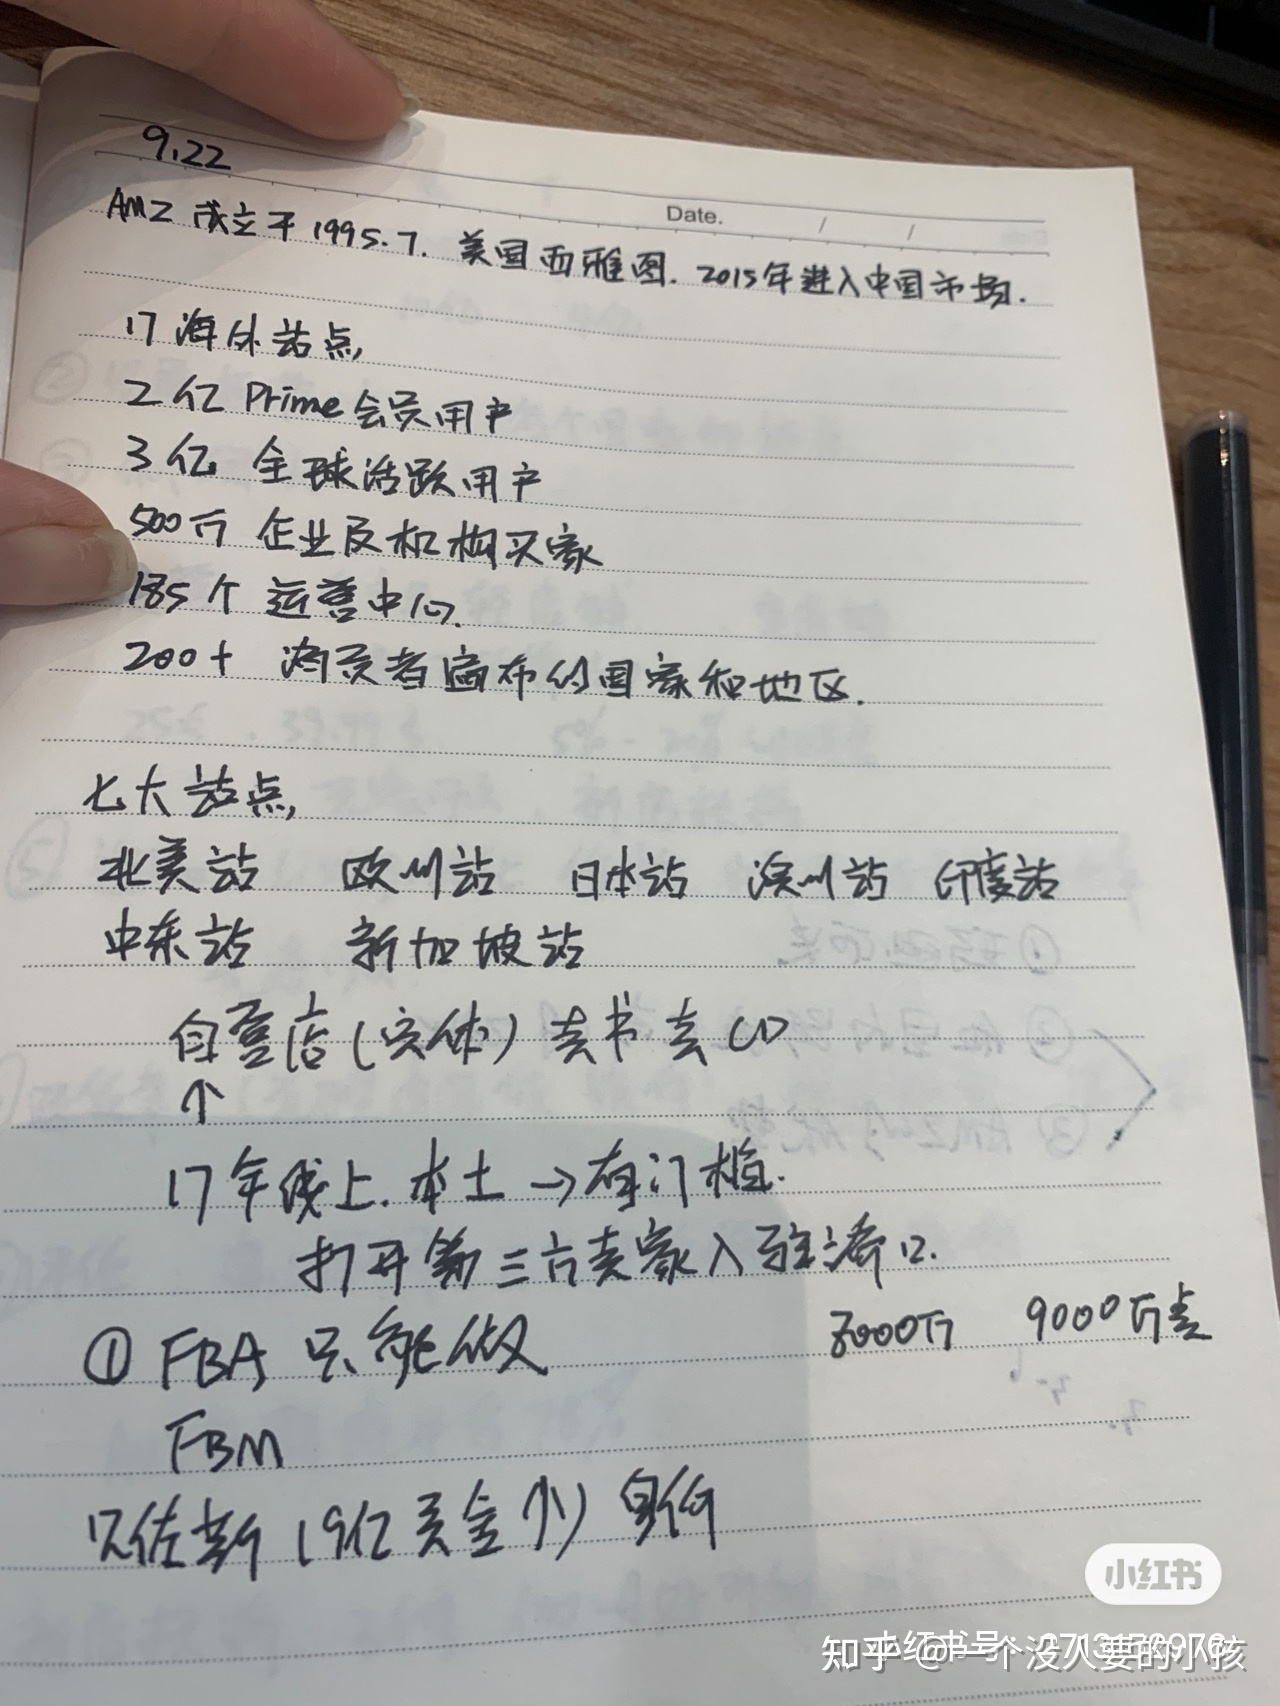 9.22
Date. / /
AMZ 成立于 1995.7. 美国西雅图. 2015年进入中国市场.
17 海外站点,
2亿 Prime会员用户
3亿 全球活跃用户
500万 企业及机构买家
185个 运营中心.
200+ 消费者遍布的国家和地区.
七大站点,
北美站 欧洲站 日本站 澳洲站 印度站
中东站 新加坡站
自营店(实体)卖书卖CD
↑
17年线上.本土→有门槛.
打开第三方卖家入驻济口.
① FBA 只能做 8000万 9000万卖
FBM
贝佐斯 (9亿美金个) 身价
小红书
小红书号:
知乎 @一个没人要的小孩